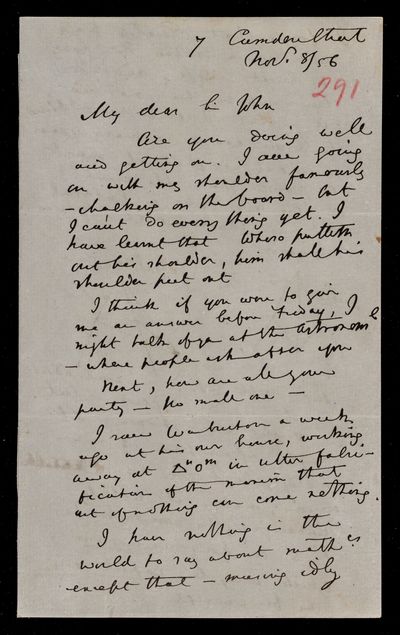 7 Camden Street
Nov. 8/56
291
My dear Sir John
Are you doing well
and getting on. I am going
on with my shoulder famously
- chalking on the board - but
I can't do every thing yet. I
have learnt that whoso putteth
out his shoulder, him shall his
shoulder put out
I think if you were to give
me an answer before Friday, I
might talk of you at the Astronoml
- where people ask after you
Next, how are all your
party - No small one -
I saw Warburton a week
ago at his own house, working
away at Δⁿ0ᵐ in utter falsi-
fication of the maxim that
out of nothing can come nothing.
I have nothing in the
world to say about mathcs
except that - musing idly